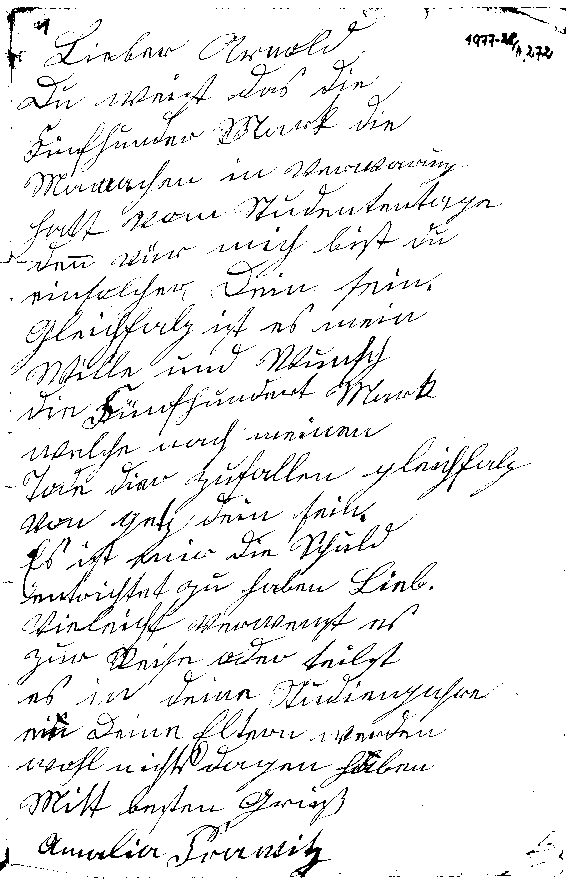 Lieber Arnold
Du weist das die
Fünfhunder Mark die
in Verwarung
hatt vom Studententage
denn vür mich bist du
ein solcher, Dein sein.
Gleichfalz ist es mein
Wille und Wunsch
die Fünfhundert Mark
welche nach meinen
Tode dier zufallen gleichfalz
von jetz dein sein.
Es ist mir die Schuld
entrichtet zu haben Lieb.
Vieleicht verwenst es
zur Reise oder teilst
es in deine Studienjahre
ein Deine Eltern werden
wohl nichts dagen haben
Mitt besten Gruß
Amalia Prawitz